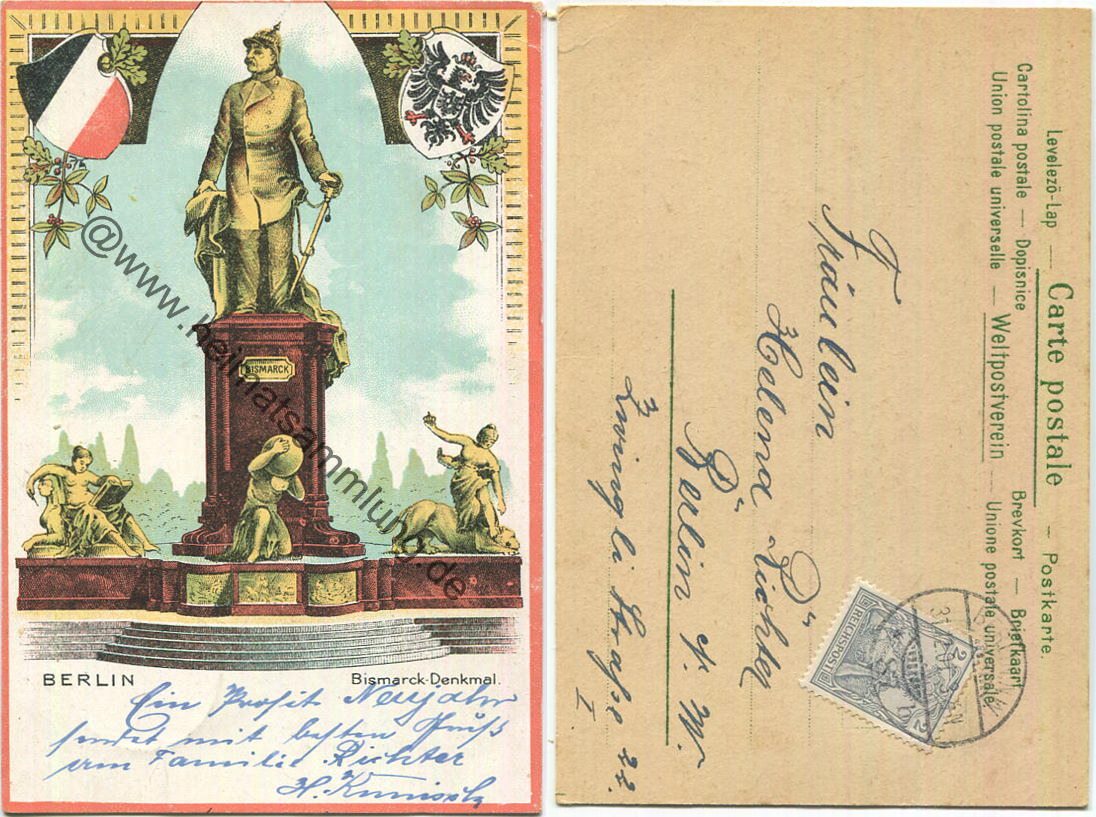 BISMARCK
BERLIN
Bismarck-Denkmal.
Ein Prosit Neujahr
sendet mit besten Gruß
an Familie Richter
H.
@www.heimatsammlung.de
Levelező-Lap — Carte postale — Postkarte.
Cartolina postale — Dopisnice Brevkort — Briefkaart
Union postale universelle — Weltpostverein — Unione postale universale
REICHSPOST
2 2
Fräulein
Helena
Berlin N. W.
Zwingli Straße 22.
I.